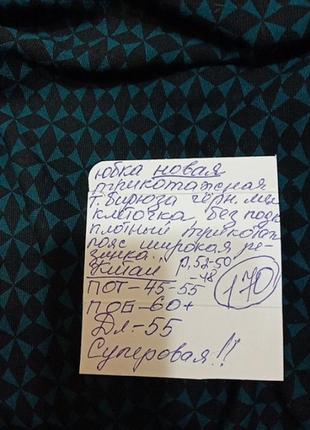 юбка новая
трикотажная
т. бирюза чёрн.
клеточка, без подк
плотный трикотаж
пояс широкая ре-
зинка.
Китай р. 52-50
-48
170
ПОТ-45-55
ПОБ-60+
Дл-55
Суперовая!!